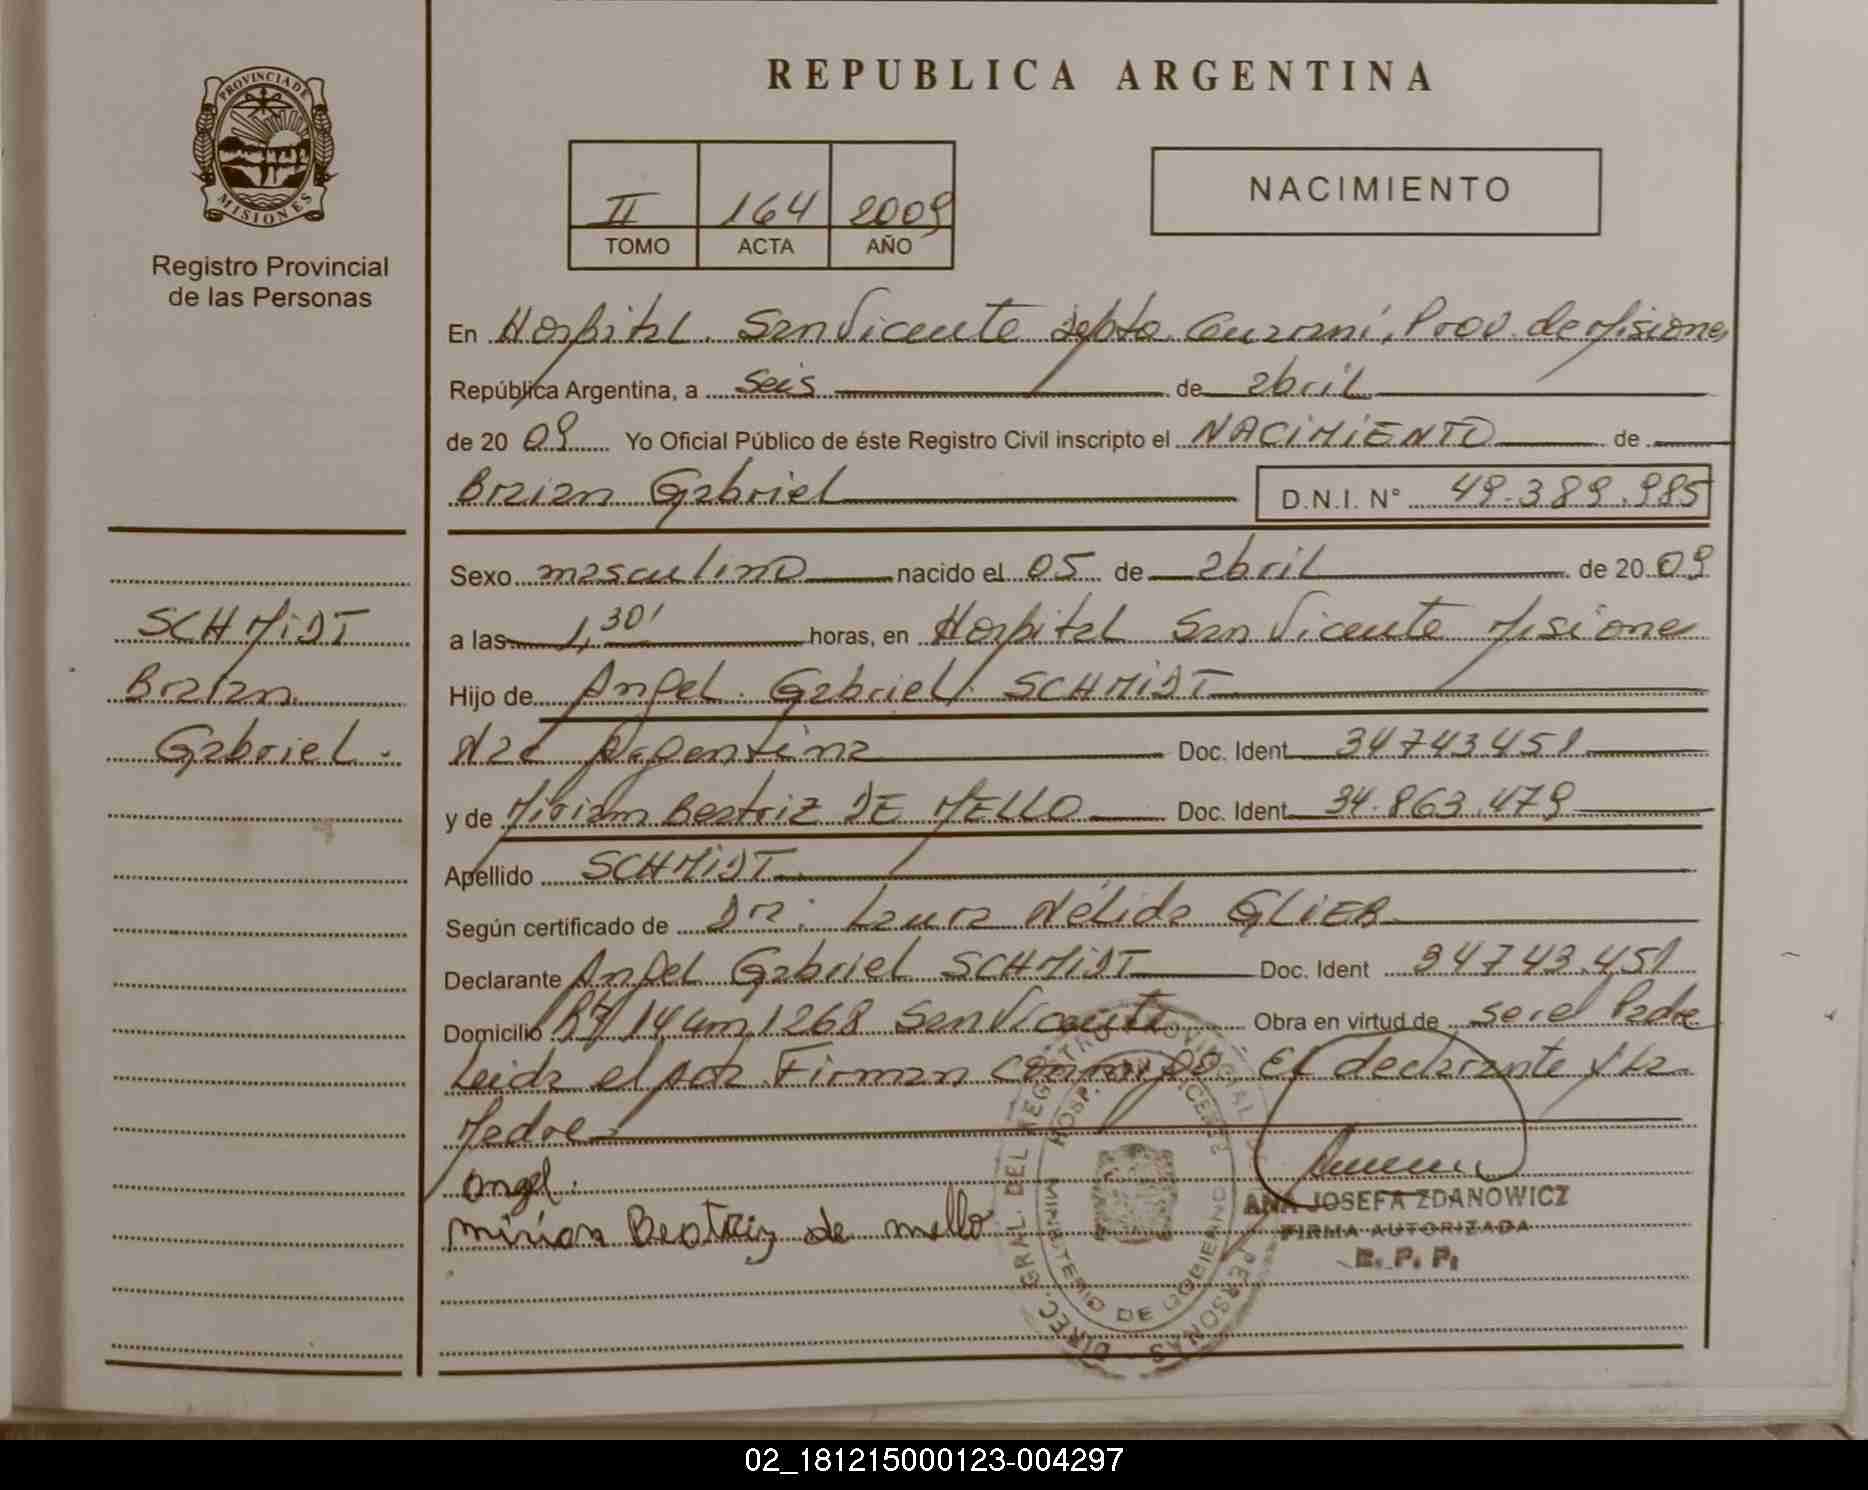 PROVINCIA DE
MISIONES
Registro Provincial
de las Personas
SCHMIDT
Braian
Gabriel.
REPUBLICA ARGENTINA
II 164 2009
TOMO ACTA AÑO
NACIMIENTO
En Hospital San Vicente depto Guaraní, Prov. de Misiones
República Argentina, a seis de abril
de 20 09 Yo Oficial Público de éste Registro Civil inscripto el NACIMIENTO de
Braian Gabriel D.N.I. N° 49.389.985
Sexo masculino nacido el 05 de abril de 20 09
a las 4,30' horas, en Hospital San Vicente Misiones
Hijo de Angel Gabriel SCHMIDT
Nac Argentina Doc. Ident 34743451
y de Miriam Beatriz DE MELLO Doc. Ident 34.863.479
Apellido SCHMIDT
Según certificado de Dra: Laura Nélida GLIER
Declarante Angel Gabriel SCHMIDT Doc. Ident 34743.451
Domicilio R7/14 km 1268 San Vicente Obra en virtud de ser el Padre
Leida el acta Firman conmigo El declarante y la
Madre
angel.
mirian Beatriz de mello
DIREC. GRAL. DEL REGISTRO PROVINCIAL PERSONAS
HOSP. VICENTE
MINISTERIO DE GOBIERNO
ANA JOSEFA ZDANOWICZ
FIRMA AUTORIZADA
R. P. P.
02_181215000123-004297